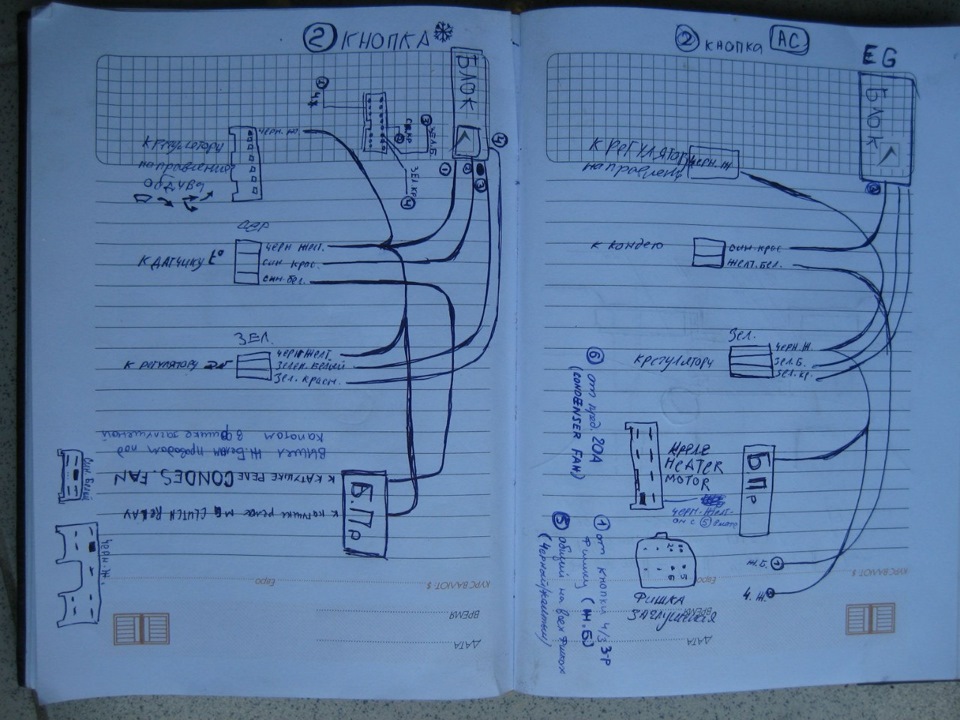 ② КНОПКА
БЛОК
черн. жо.
К РЕГУЛЯТОРУ
направления
ОБДУВЫ
② Ч.Ж
③ ЗЕЛ.Б
ЗЕЛ.КР.
④
① ② ③ ④
СЕР
К ДАТЧИКУ t°
черн желт.
син крас.
син бел.
ЗЕЛ.
К РЕГУЛЯТОРУ
черн желт.
зелен. белый
зел. красн.
вышел ж.белым проводом под
капотом в фишке заглушеной
К КАТУШКЕ РЕЛЕ CONDES. FAN
К КАТУШКЕ РЕЛЕ MG CLUTCH RELAY
Б.Пр
син. белый
черн. ж.
КУРС ВАЛЮТ: $
Евро
ВРЕМЯ
ДАТА
② КНОПКА AC
EG
БЛОК
К РЕГУЛЯТОРУ
направлен
черн. ж
②
К КОНДЕЮ
син крас
желт. бел.
Зел.
К РЕГУЛЯТОРУ
черн. ж.
зел. б.
зел. кр.
⑥ от пред. 20А
(CONDENSER FAN)
К РЕЛЕ
HEATER
MOTOR
черн. желт-
он с ⑤
Б Пр
① от кнопки 4/3 3-Р
фишки (ж.б)
⑤ общий на всех фишках
(черный/желтый)
ФИШКА
ЗАГЛУШЕНАЯ
Ж.Б. ①
Ч. Ж.
КУРС ВАЛЮТ: $
Евро
ВРЕМЯ
ДАТА